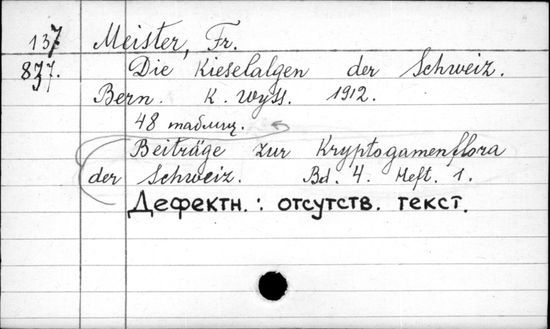 137 Meister, Fr.
837. Die Kieselalgen der Schweiz.
Bern. K. Wyss. 1912.
48 таблиц.
Beiträge zur Kryptogamenflora
der Schweiz. Bd. 4. Heft. 1.
Дефектн.: отсутств. текст.